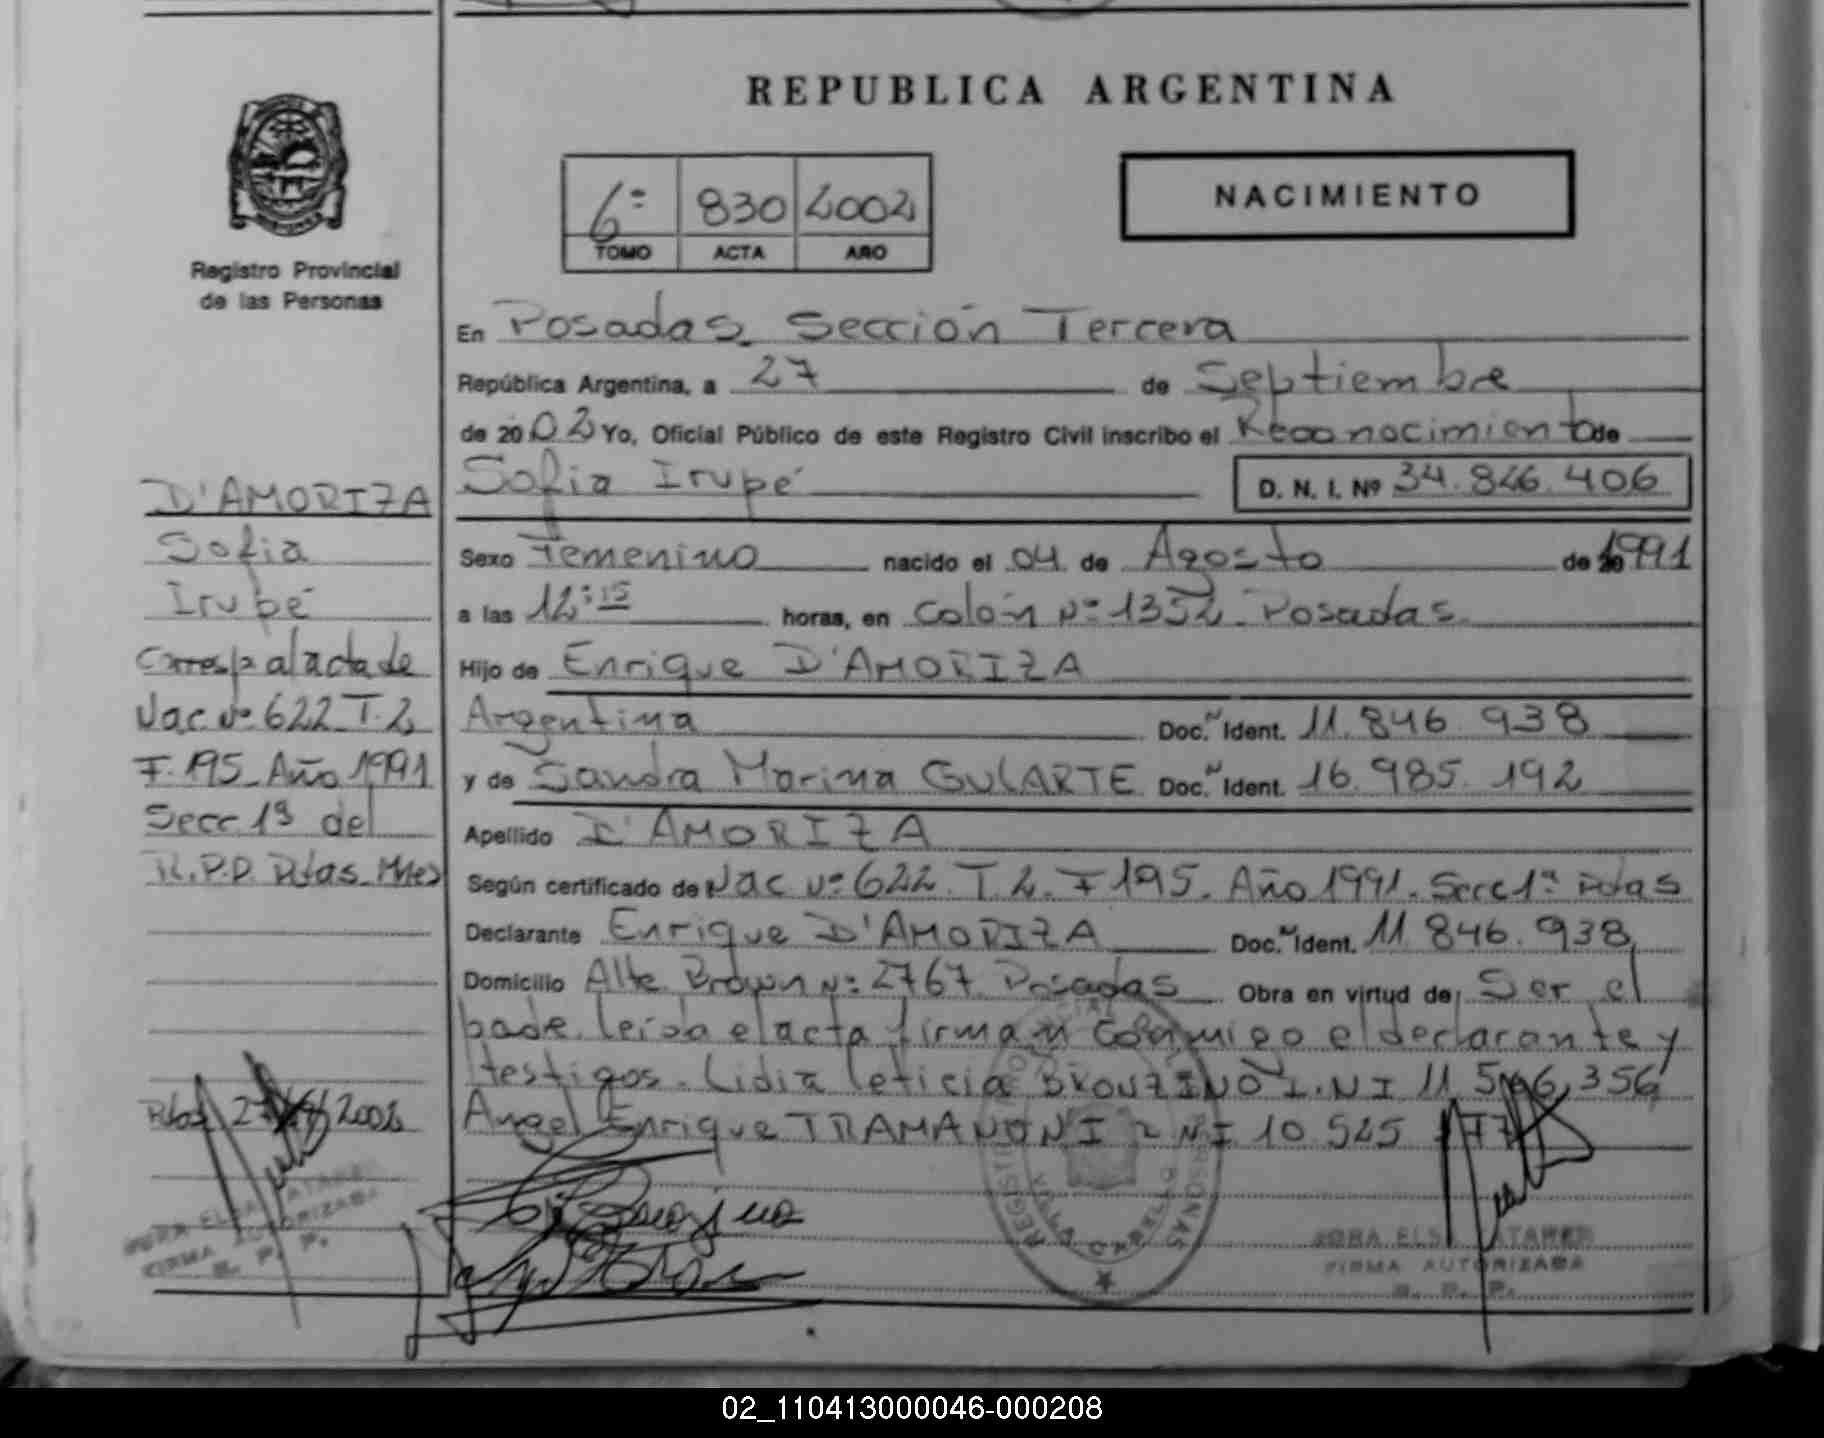 REPUBLICA ARGENTINA
6º 830 2002
TOMO ACTA AÑO
NACIMIENTO
Registro Provincial
de las Personas
En Posadas Sección Tercera
República Argentina, a 27 de Septiembre
de 2002 Yo, Oficial Público de este Registro Civil inscribo el Reconocimiento de
Sofia Irupé D. N. I. Nº 34.826.406
Sexo Femenino nacido el 04 de Agosto de 1991
a las 12:15 horas, en Colón Nº 1352. Posadas.
Hijo de Enrique D'AMORIZA
Argentina Doc. Ident. 11.846.938
y de Sandra Marina GULARTE Doc. Ident. 16.985.192
Apellido D'AMORIZA
Según certificado de Nac Nº 622 T.2. F 195. Año 1991. Secc 1ª Pdas
Declarante Enrique D'AMORIZA Doc. Ident. 11.846.938
Domicilio Alte. Brown Nº 2767 Posadas Obra en virtud de Ser el
padre. leida el acta firman conmigo el declarante y
testigos. Lidia leticia 11 356
Angel Enrique TRAMANNONI 10.525
D'AMORIZA
Sofia
Irupé
Corresp al acta de
Nac Nº 622 T.2
F.195_Año 1991
Secc 1ª del
R.P.P. Pdas. Mnes
Pdas 27 2002
FIRMA AUTORIZADA
R. P. P.
FIRMA AUTORIZADA
R. P. P.
02_110413000046-000208